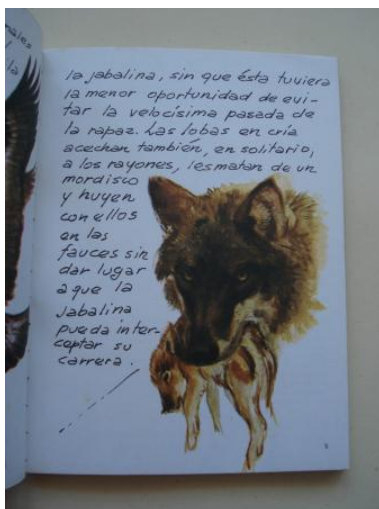 nales
la
la jabalina, sin que ésta tuviera
la menor oportunidad de evi-
tar la velocísima pasada de
la rapaz. Las lobas en cría
acechan también, en solitario,
a los rayones, les matan de un
mordisco
y huyen
con ellos
en las
fauces sin
dar lugar
a que la
jabalina
pueda inter-
ceptar su
carrera.